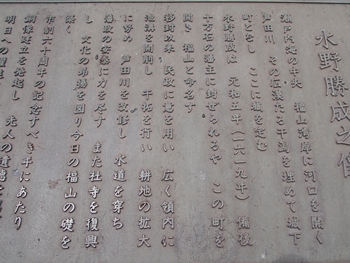 水野勝成之像
瀬戸内海の中央 福山湾岸に河口を開く
芦田川 その広漠たる干潟を埋めて城下
町となし ここに城を定む
水野勝成は 元和五年(一六一九年) 備後
十万石の藩主に封ぜられるや この町を
開き 福山と命名す
移封以来 民政に意を用い 広く領内に
溝を開鑿し 干拓を行い 耕地の拡大
に努め 芦田川を改修し 水道を穿ち
藩政の安泰に力を尽す また社寺を復興
し 文化の昂揚を図り今日の福山の礎を
築く
市制六十周年の記念すべき年にあたり
銅像建立を発起し 先人の遺徳を
明日への